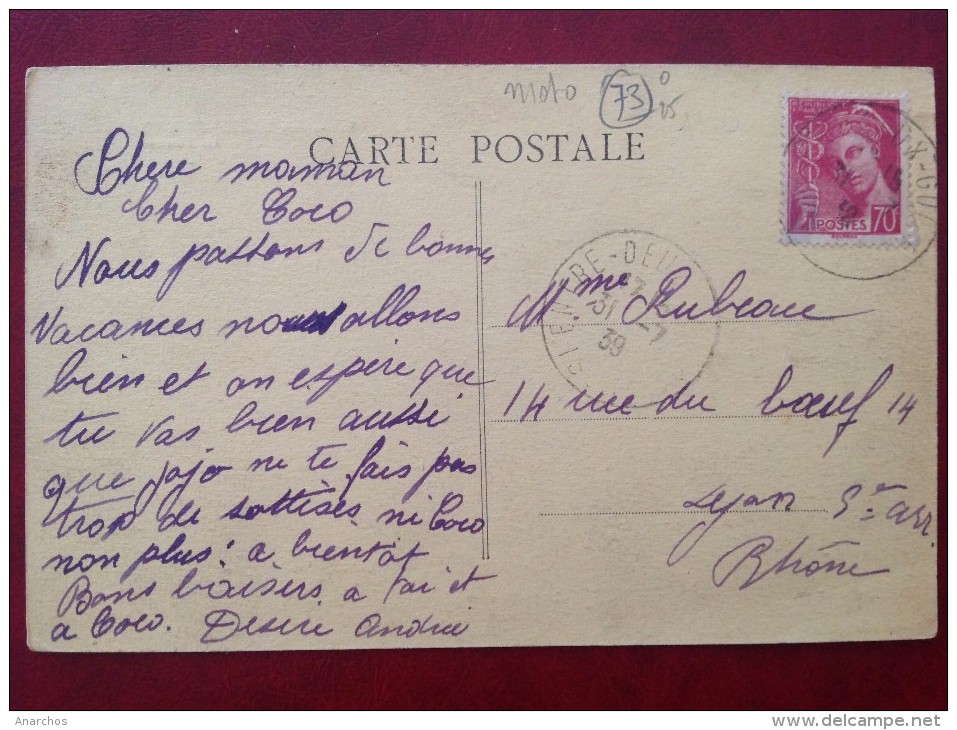 moto 73 0
25
CARTE POSTALE
Chere maman
Cher Coco
Nous passons de bonnes
vacances nous allons
bien et on espère que
tu vas bien aussi
que jojo ne te fais pas
trop de sottises ni Coco
non plus: a bientot
Bons baisers a toi et
a Coco. Desire Andrée
POSTES 70c
RE-DEU
31 -7
39
Mme Rubeau
14 rue du boeuf 14
Lyon 5e arr.
Rhône
Anarchos
www.delcampe.net